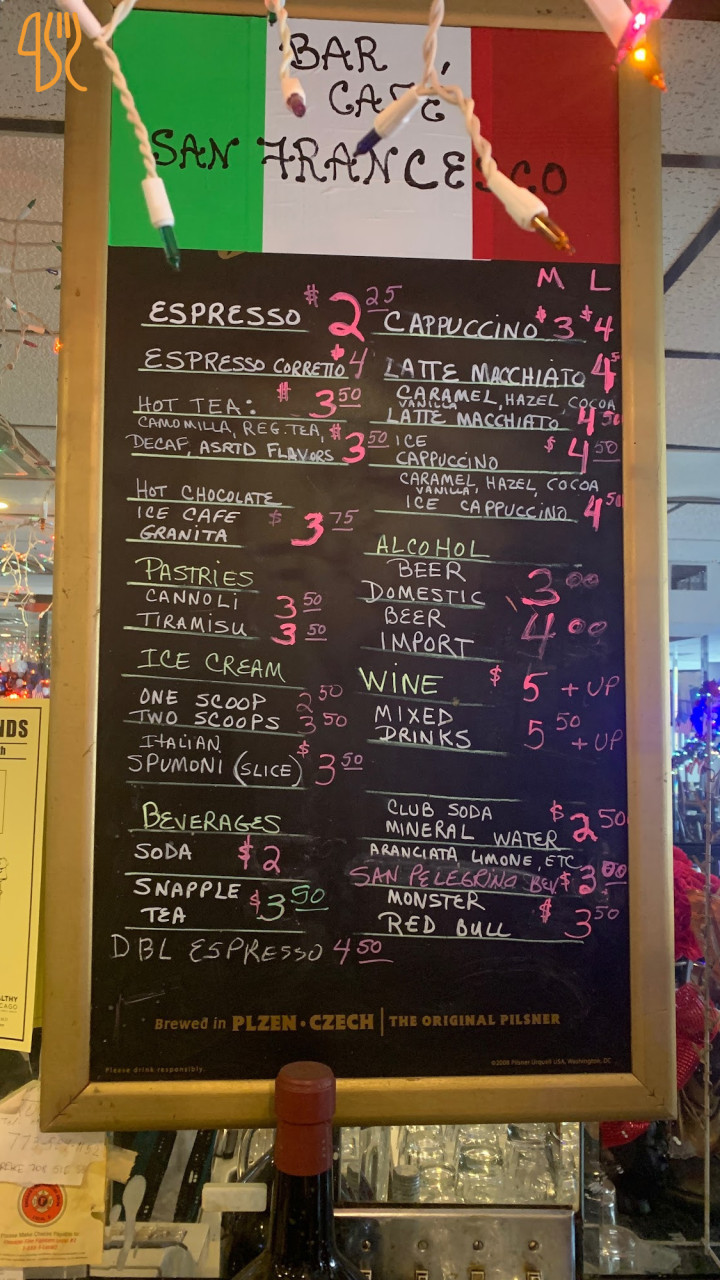 BAR
CAFÉ
SAN FRANCESCO
M L
ESPRESSO $2 25
ESPRESSO CORRETTO $4
HOT TEA: $3 50
CAMOMILLA, REG. TEA,
DECAF, ASRTD FLAVORS $3 50
HOT CHOCOLATE
ICE CAFE
GRANITA $3 75
PASTRIES
CANNOLI 3 50
TIRAMISU 3 50
ICE CREAM
ONE SCOOP 2 50
TWO SCOOPS 3 50
ITALIAN
SPUMONI (SLICE) $3 50
BEVERAGES
SODA $2
SNAPPLE
TEA $3 50
DBL ESPRESSO 4 50
CAPPUCCINO $3 $4
LATTE MACCHIATO 4
CARAMEL, HAZEL, COCOA
VANILLA
LATTE MACCHIATO 4 50
ICE
CAPPUCCINO $4 50
CARAMEL, HAZEL, COCOA
VANILLA,
ICE CAPPUCCINO 4 50
ALCOHOL
BEER
DOMESTIC 3 00
BEER
IMPORT 4 00
WINE $5 + UP
MIXED
DRINKS 5 50 + UP
CLUB SODA
MINERAL WATER $2 50
ARANCIATA LIMONE, ETC
SAN PELEGRINO BEV $3 00
MONSTER
RED BULL $3 50
Brewed in PLZEN · CZECH | THE ORIGINAL PILSNER
Please drink responsibly.
©2008 Pilsner Urquell USA, Washington, DC
NDS